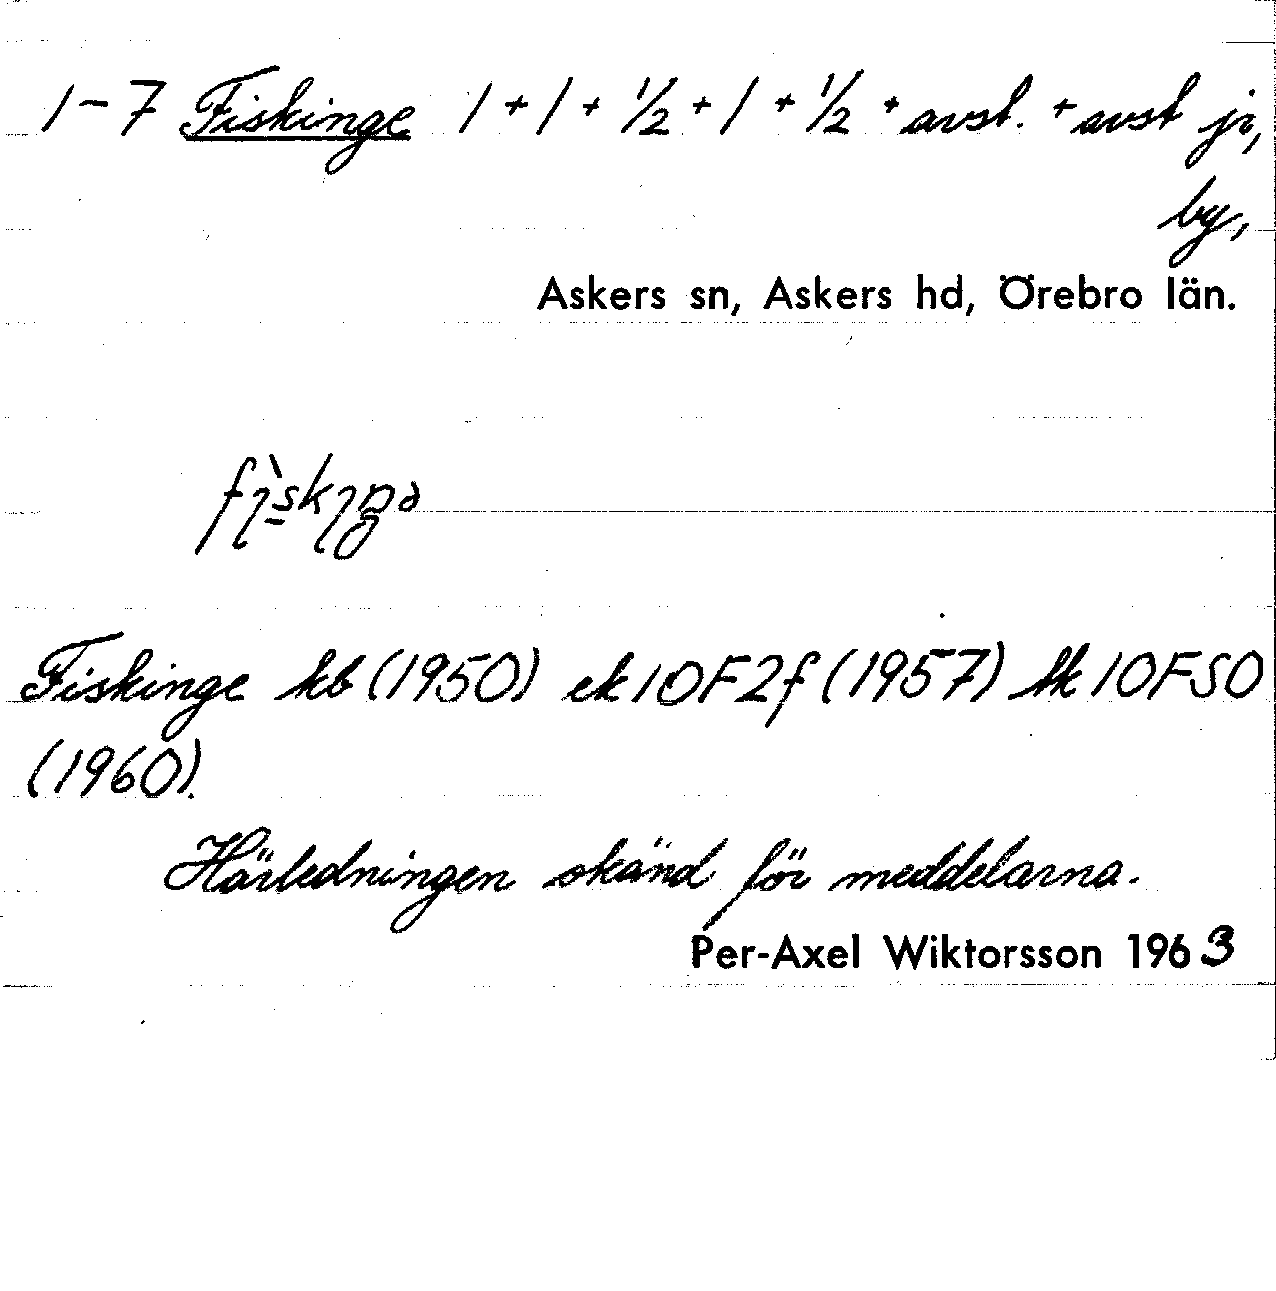 1-7 Fiskinge 1+1+½+1+½+avst.+avst jr,
by,
Askers sn, Askers hd, Örebro län.
Fiskinge kb (1950) ek 10F2f (1957) tk 10FSO
(1960).
Härledningen okänd för meddelarna.
Per-Axel Wiktorsson 1963